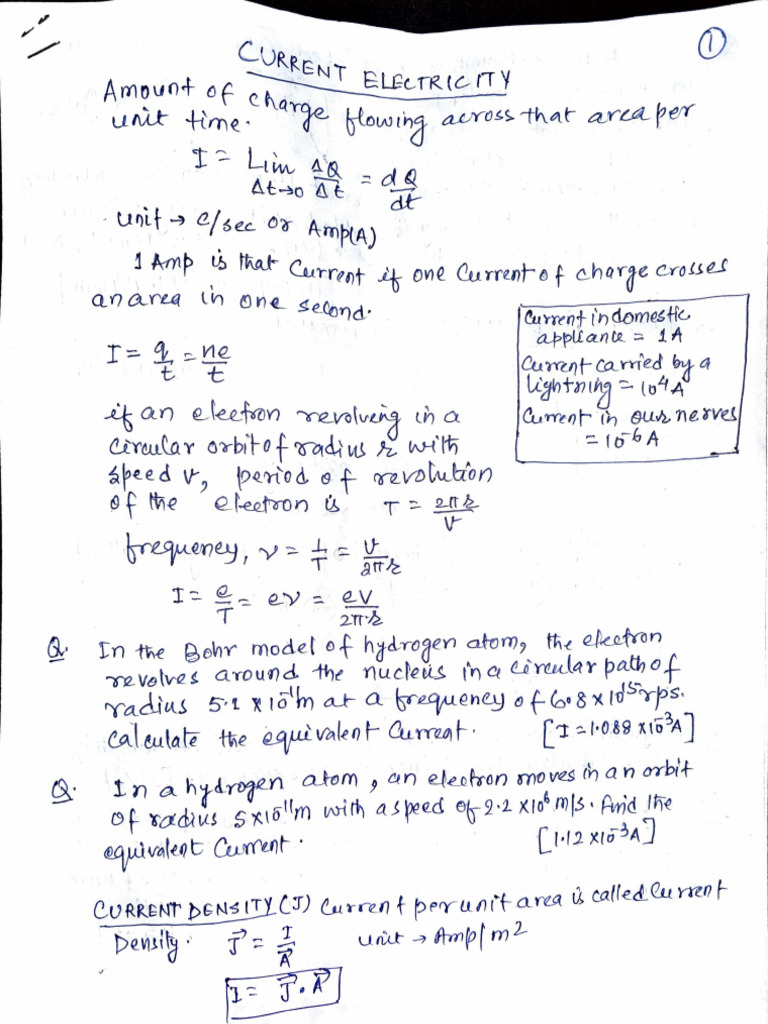 ①
CURRENT ELECTRICITY
Amount of charge flowing across that area per
unit time.
I = Lim ΔQ/Δt = dQ/dt
Δt→0
unit → C/sec or Amp(A)
1 Amp is that Current if one Current of charge crosses
an area in one second.
Current in domestic
appliance = 1A
Current carried by a
lightning = 10⁴A
Current in our nerves
= 10⁻⁶A
I = q/t = ne/t
if an electron revolving in a
circular orbit of radius r with
speed v, period of revolution
of the electron is T = 2πr/v
frequency, ν = 1/T = v/2πr
I = e/T = eν = eV/2πr
Q. In the Bohr model of hydrogen atom, the electron
revolves around the nucleus in a circular path of
radius 5.1 x 10⁻¹¹m at a frequency of 6.8 x 10¹⁵rps.
Calculate the equivalent Current. [I = 1.088 x10⁻³A]
Q. In a hydrogen atom, an electron moves in an orbit
of radius 5x10⁻¹¹m with a speed of 2.2 x10⁶ m/s. find the
equivalent Current. [1.12 x10⁻³A]
CURRENT DENSITY(J) Current per unit area is called Current
Density. J⃗ = I/A⃗ unit → Amp/m²
I = J⃗ . A⃗